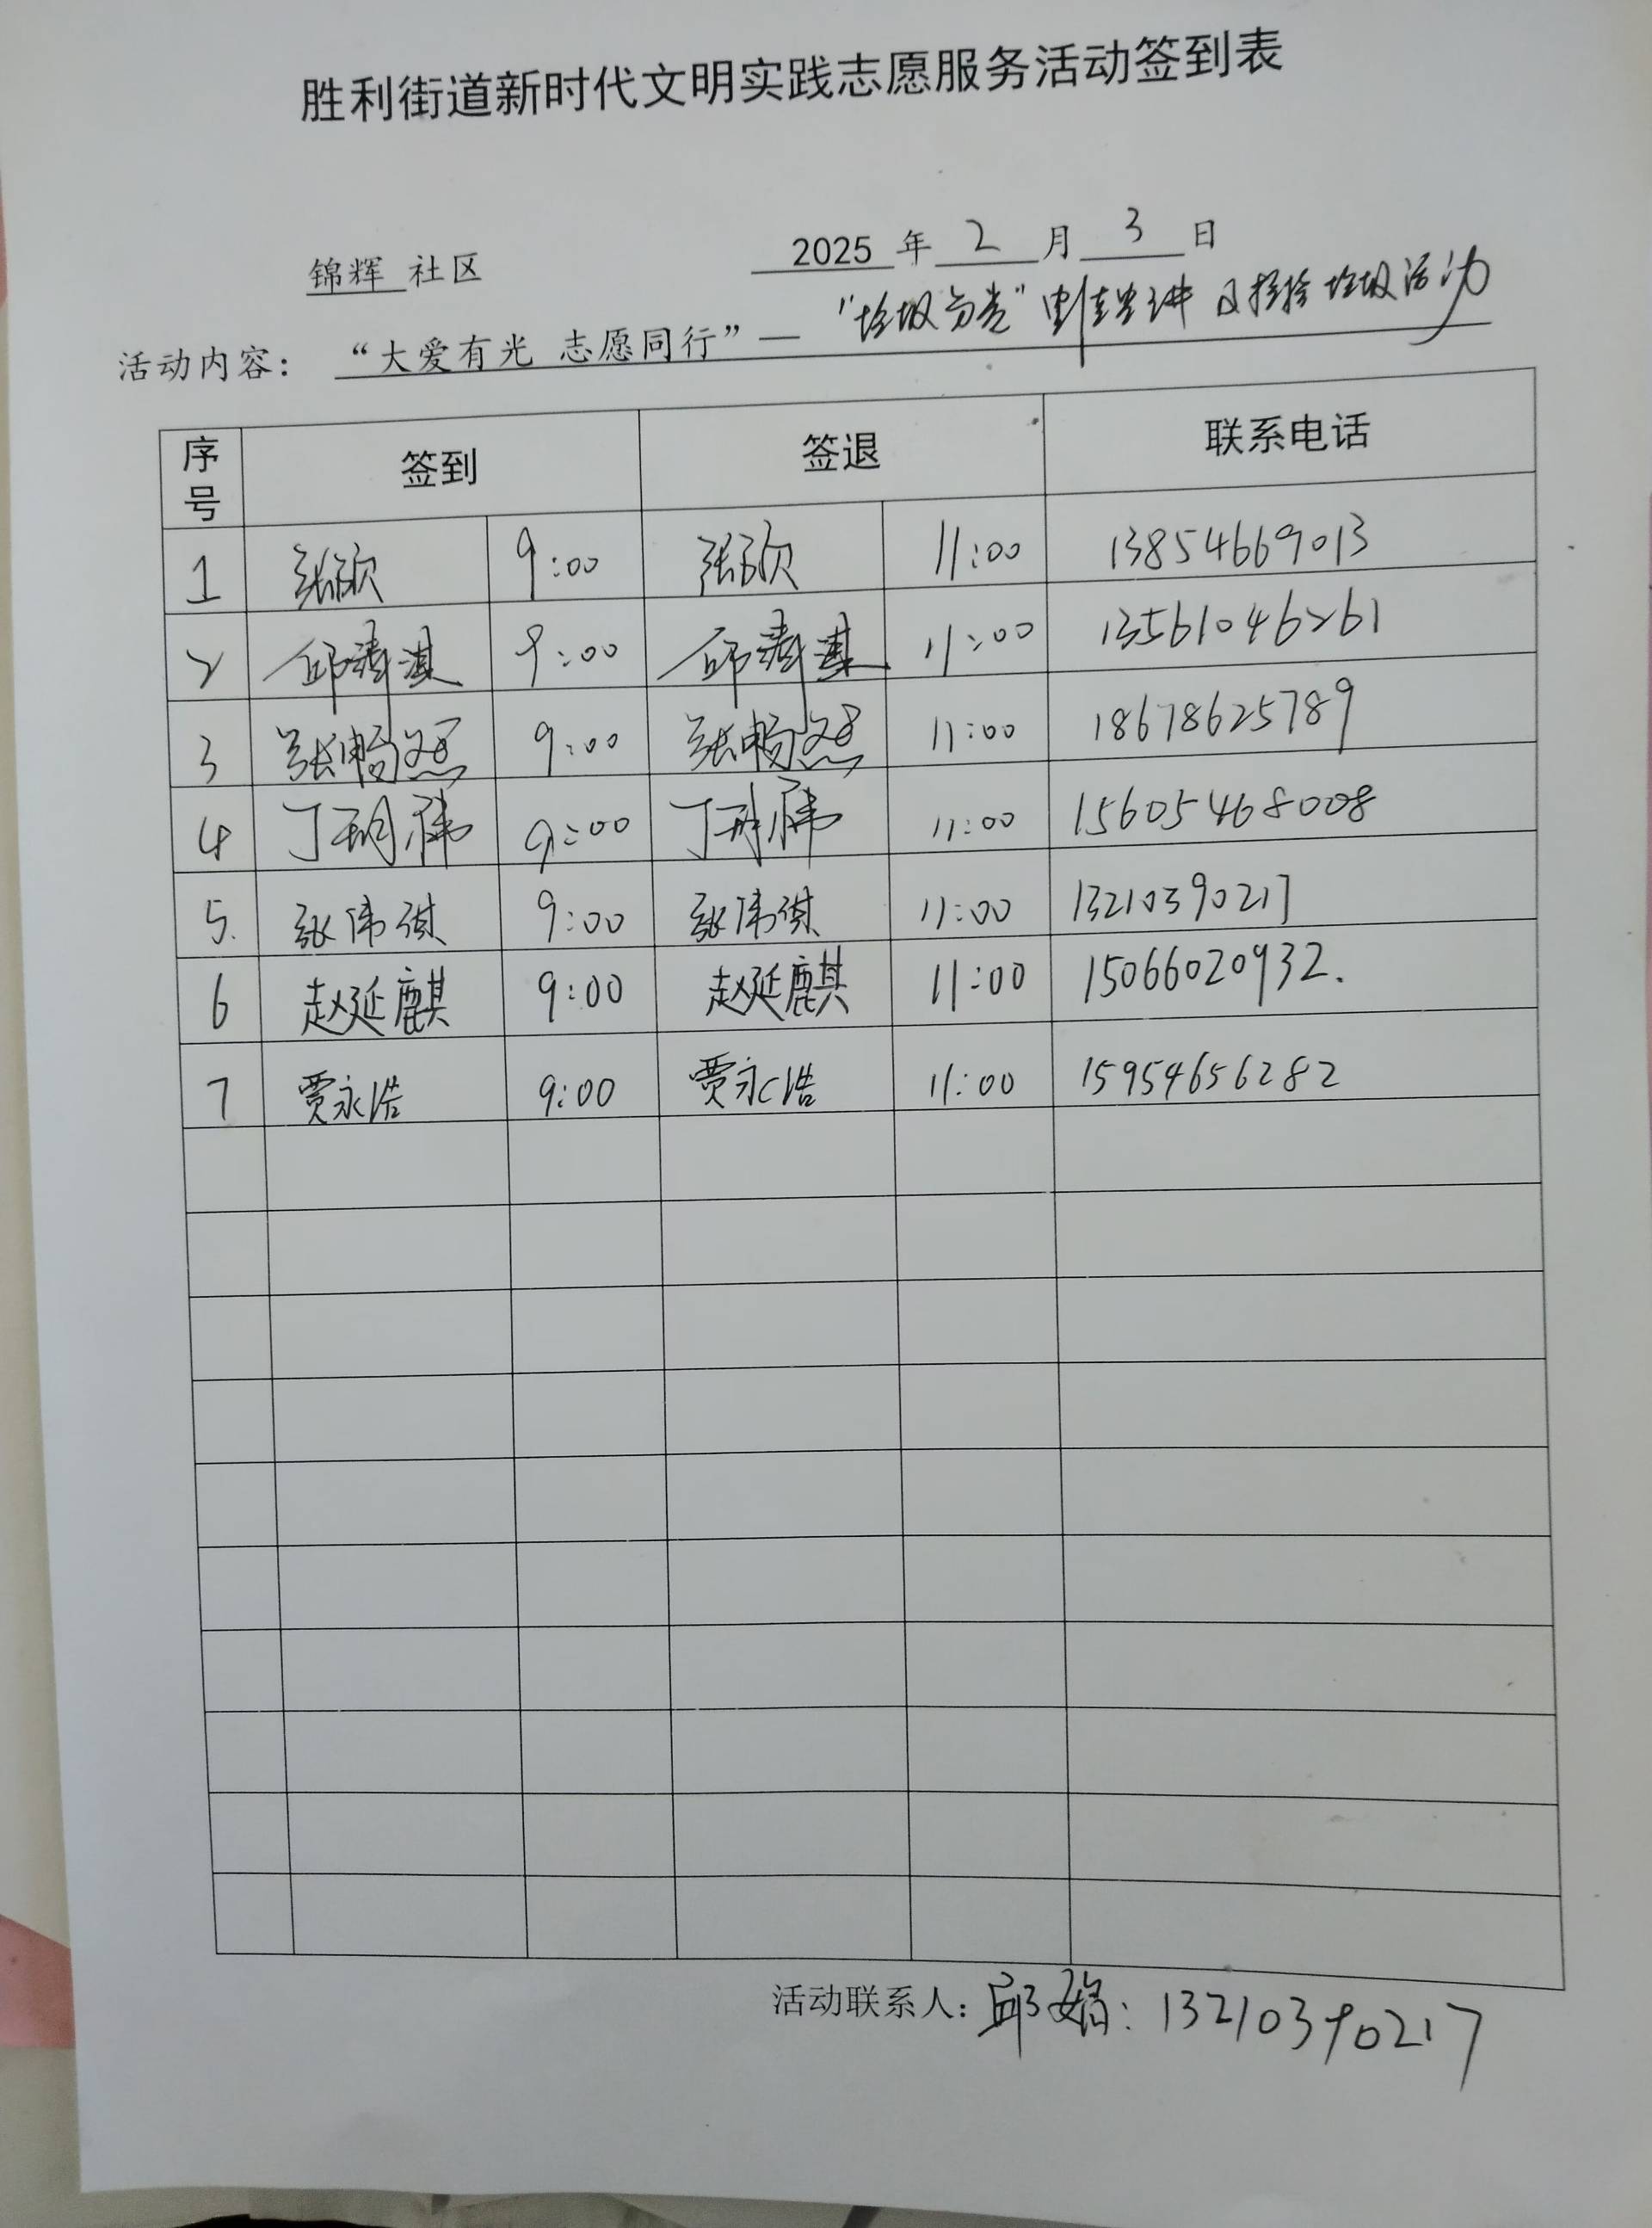 胜利街道新时代文明实践志愿服务活动签到表
锦辉 社区 2025 年 2 月 3 日
活动内容： “大爱有光 志愿同行”— “垃圾分类” 及捡拾垃圾活动
序号 签到 签退 联系电话
1 张欣 9:00 张欣 11:00 13854669013
2 邱清淇 9:00 邱清淇 11:00 13561046261
3 张畅然 9:00 张畅然 11:00 18678625789
4 丁玥祎 9:00 丁玥祎 11:00 15605468008
5. 张伟 9:00 张伟 11:00 13210390217
6 赵延麒 9:00 赵延麒 11:00 15066020932.
7 贾永浩 9:00 贾永浩 11:00 15954656282
活动联系人：邱娟：13210390217